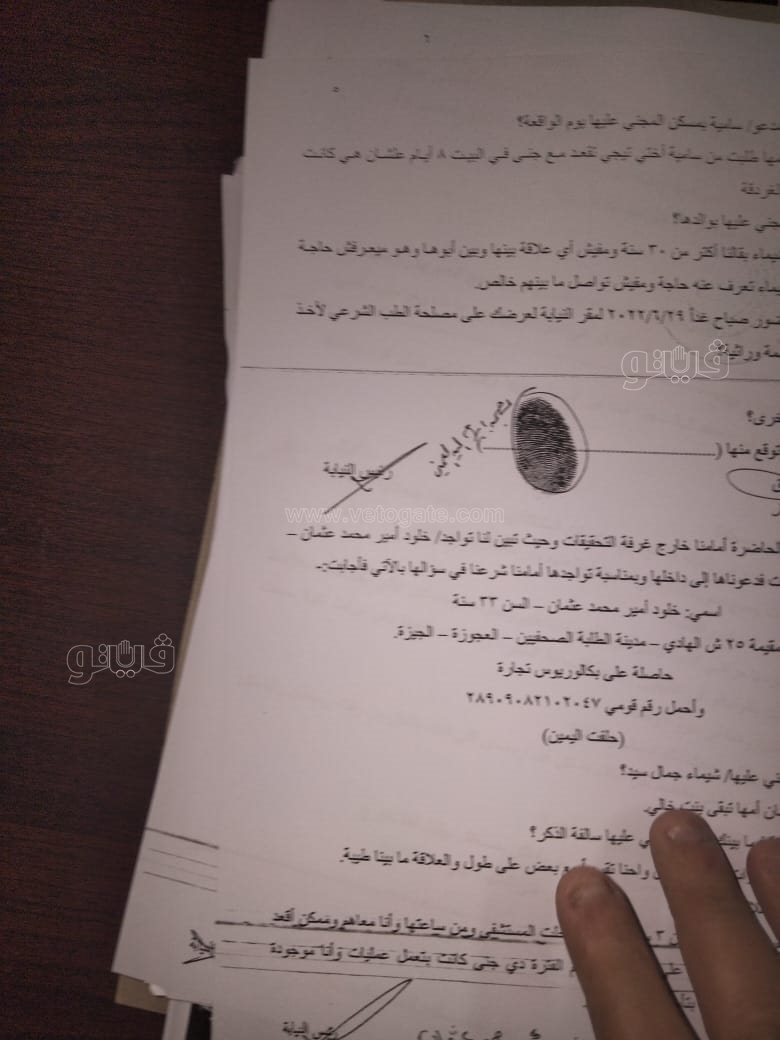 ٦
٥
سامية بمسكن المجني عليها يوم الواقعة؟
طلبت من سامية أختي تيجي تقعد مع جنى في البيت ٨ أيام علشان هي كانت
الغردقة
عليها بوالدها؟
بقالنا أكثر من ٣٠ سنة ومفيش أي علاقة بينها وبين أبوها وهو ميعرفش حاجة
تعرف عنه حاجة ومفيش تواصل ما بينهم خالص.
صباح غداً ٢٠٢٢/٦/٢٩ لمقر النيابة لعرضك على مصلحة الطب الشرعي لأخذ
وراثية؟
ڤيتو
توقع منها (
رئيس النيابة
www.vetogate.com
الحاضرة أمامنا خارج غرفة التحقيقات وحيث تبين لنا تواجد/ خلود أمير محمد عثمان –
فدعوناها إلى داخلها وبمناسبة تواجدها أمامنا شرعنا في سؤالها بالآتي فأجابت:-
اسمي: خلود أمير محمد عثمان – السن ٣٣ سنة
مقيمة ٢٥ ش الهادي – مدينة الطلبة الصحفيين – العجوزة – الجيزة.
ڤيتو
حاصلة على بكالوريوس تجارة
وأحمل رقم قومي ٢٨٩٠٩٠٨٢١٠٢٠٤٧
(حلفت اليمين)
عليها/ شيماء جمال سيد؟
أمها تبقى بنت خالي.
عليها سالفة الذكر؟
واحنا بعض على طول والعلاقة ما بينا طيبة.
المستشفى ومن ساعتها وأنا معاهم وممكن أقعد
الفترة دي جنى كانت بتعمل عمليات وأنا موجودة
رئيس النيابة